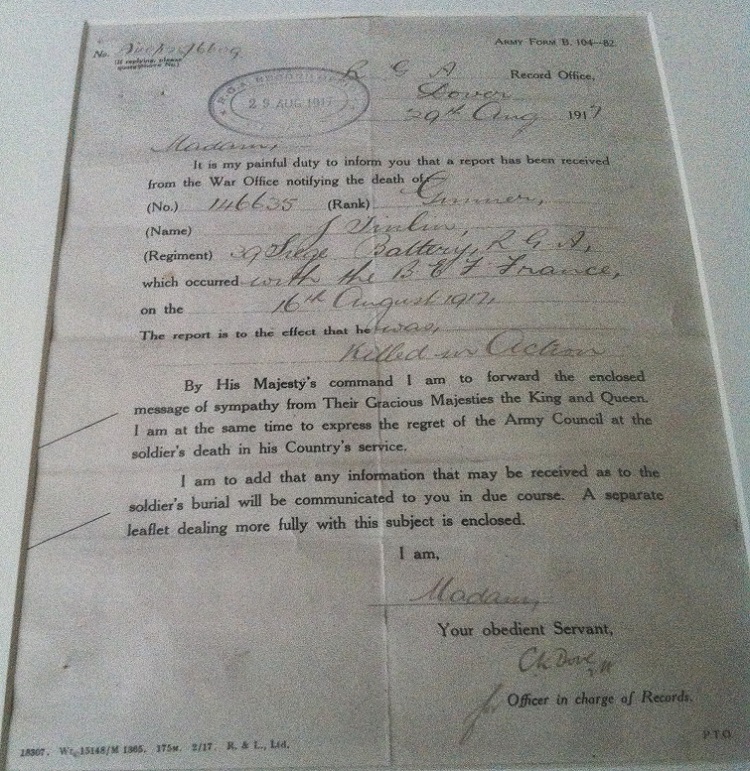 Army Form B. 104—82.
No.
(If replying, please
quote above No.)
R G A Record Office,
29 AUG 1917
Dover
29th Aug 1917
Madam,
It is my painful duty to inform you that a report has been received
from the War Office notifying the death of
(No.) 146635 (Rank) Gunner,
(Name) J Tinlin,
(Regiment) 39 Siege Battery, R G A,
which occurred with the B E F France,
on the 16th August 1917,
The report is to the effect that he was,
Killed in Action
By His Majesty's command I am to forward the enclosed
message of sympathy from Their Gracious Majesties the King and Queen.
I am at the same time to express the regret of the Army Council at the
soldier's death in his Country's service.
I am to add that any information that may be received as to the
soldier's burial will be communicated to you in due course. A separate
leaflet dealing more fully with this subject is enclosed.
I am,
Madam,
Your obedient Servant,
for Officer in charge of Records.
18307. Wt. 15148/M 1365. 175M. 2/17. R. & L., Ltd.
P.T.O.